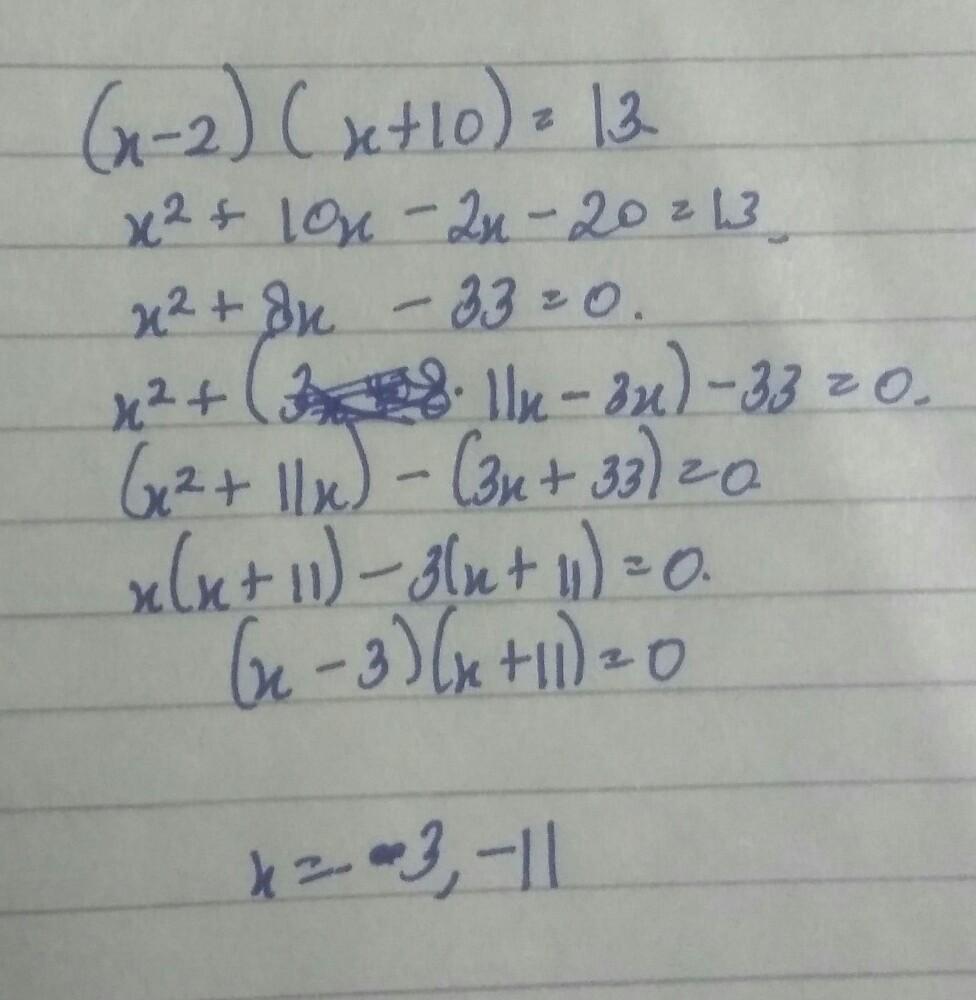 (x-2) (x+10) = 13
x² + 10x - 2x - 20 = 13
x² + 8x - 33 = 0.
x² + ( 11x - 3x) - 33 = 0.
(x² + 11x) - (3x + 33) = 0
x(x + 11) - 3(x + 11) = 0.
(x - 3)(x + 11) = 0
x = -3, -11